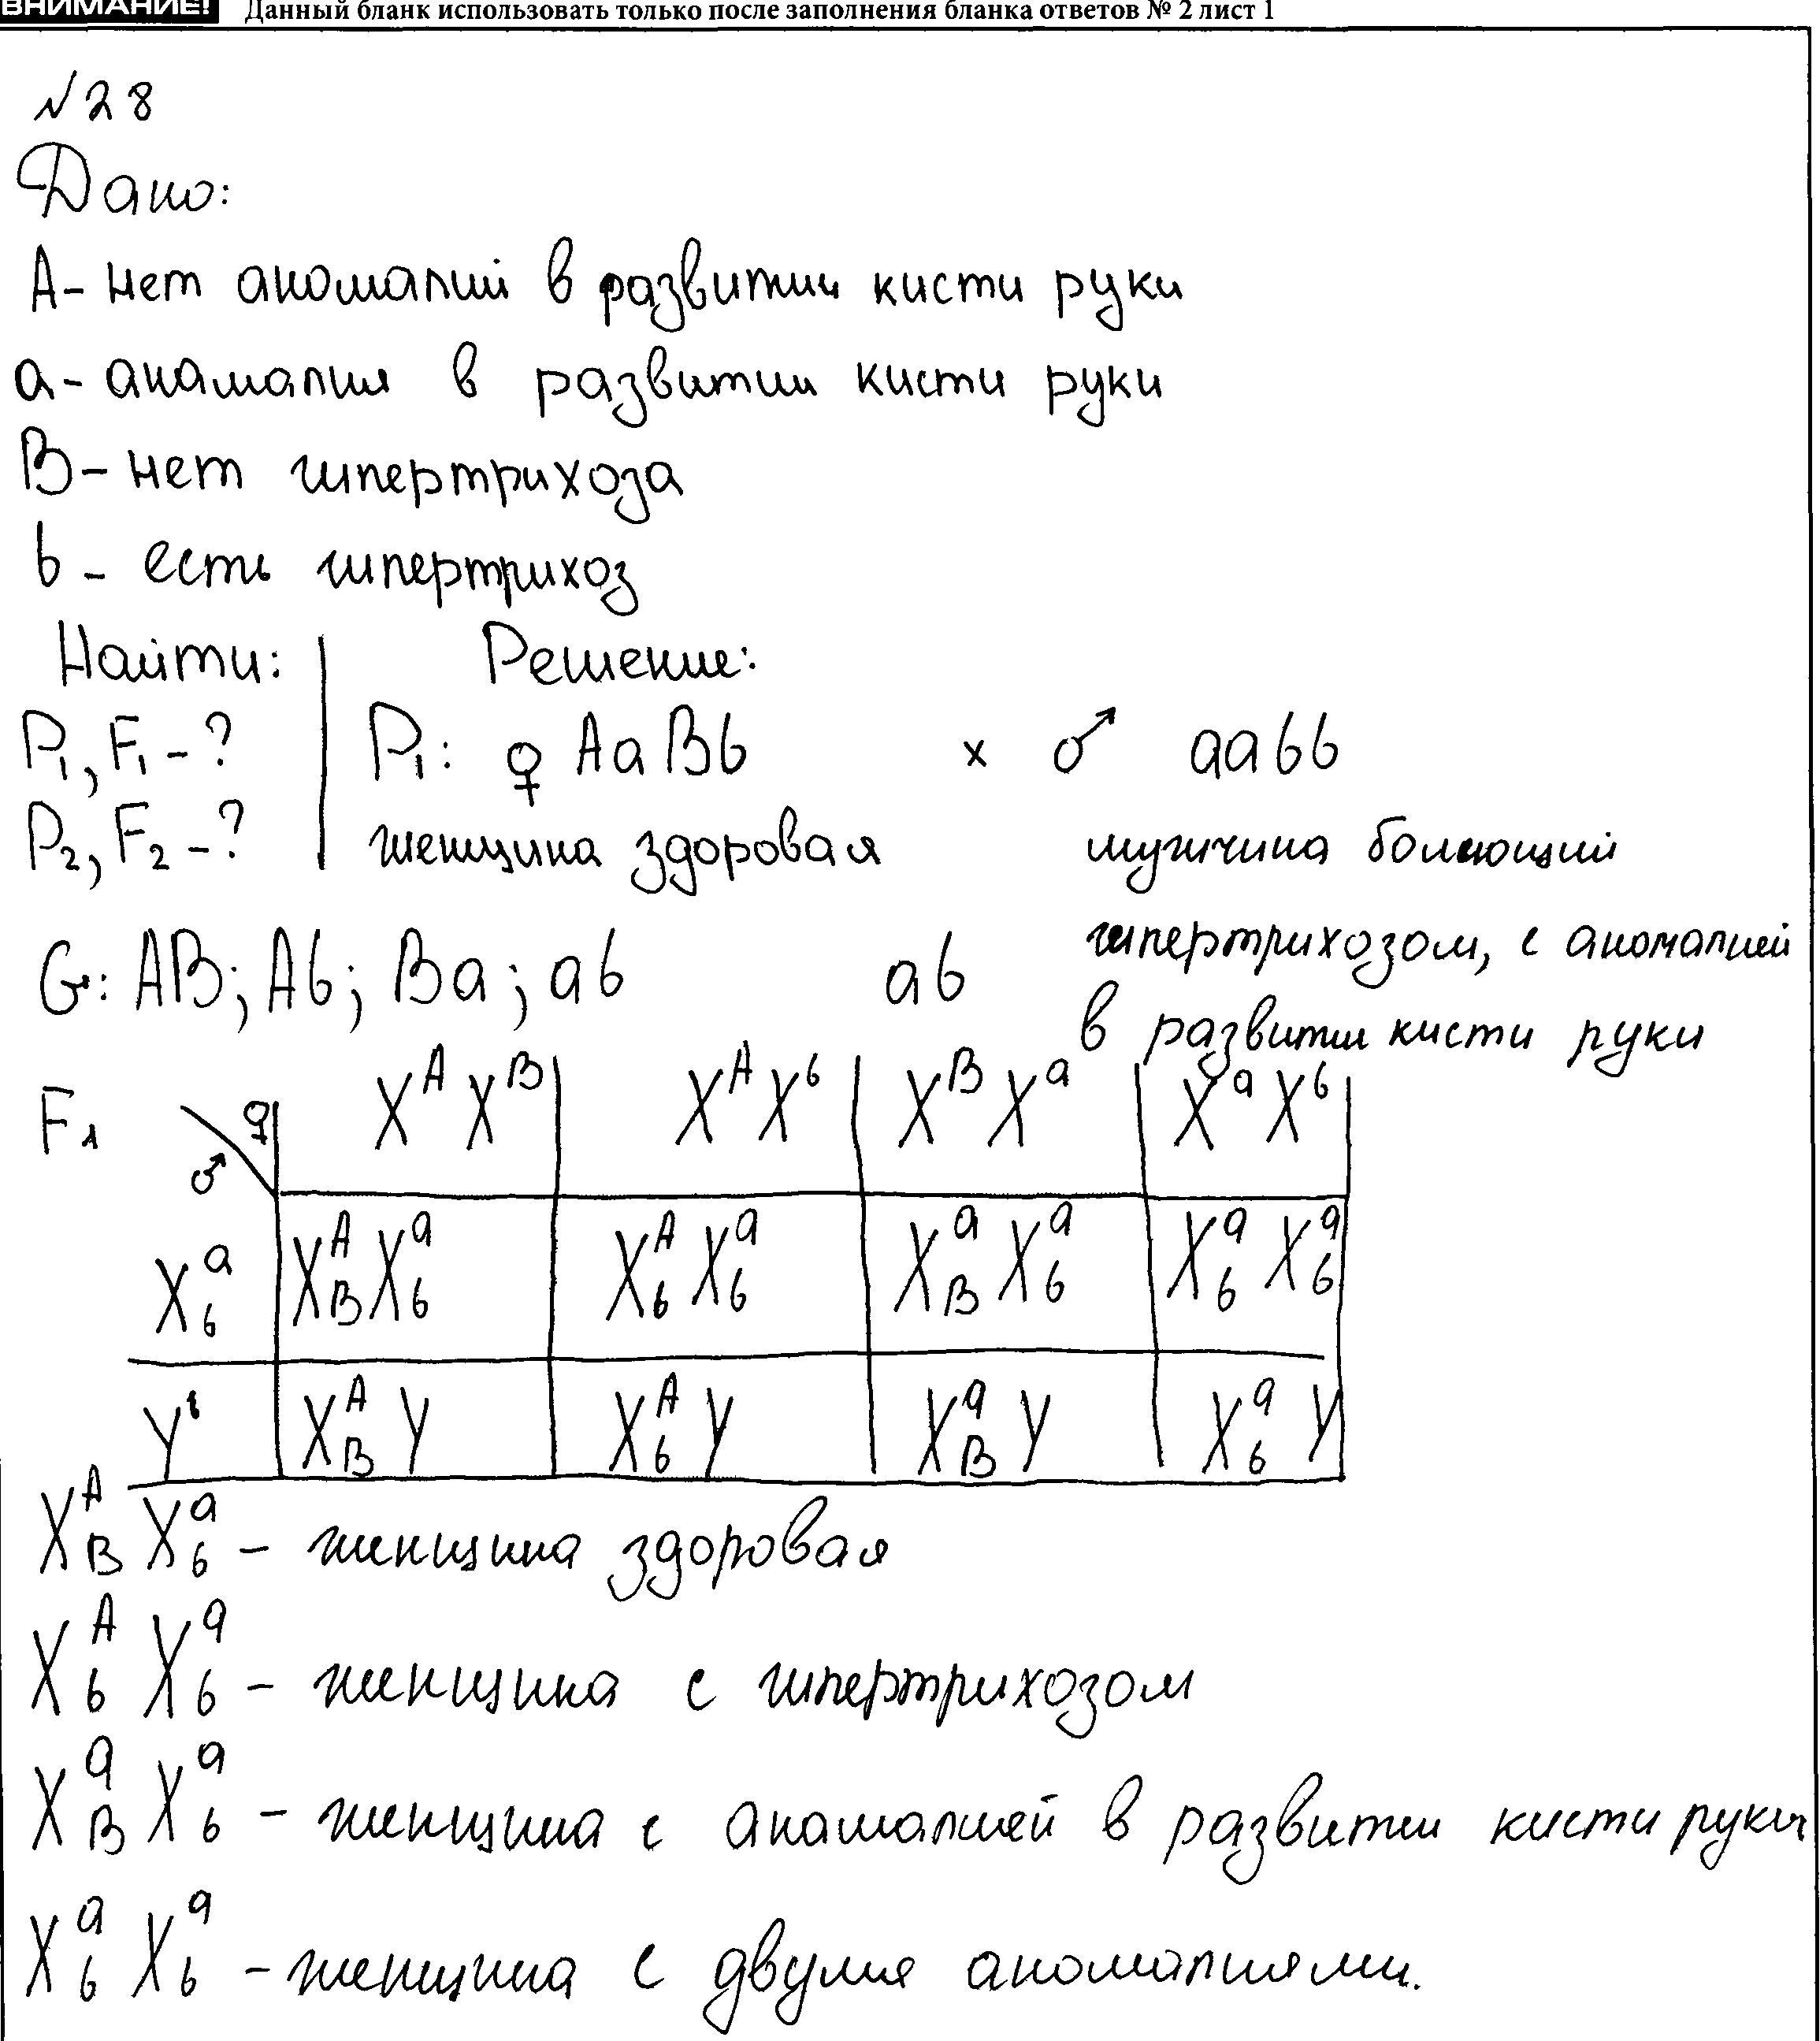 ВНИМАНИЕ! Данный бланк использовать только после заполнения бланка ответов № 2 лист 1
№28
Дано:
А- нет аномалий в развитии кисти руки
а- анамалия в развитии кисти руки
В- нет гипертрихоза
b - есть гипертрихоз
Найти: Решение:
P₁, F₁ - ? P₁: ♀ AaBb x ♂ aabb
P₂, F₂ - ? женщина здоровая мужчина болеющий
гипертрихозом, с аномалией
G: AB; Ab; Ba; ab ab
в развитии кисти руки
F₁ ♀ X^A X^B X^A X^b X^B X^a X^a X^b
♂
X^a_b X^A_B X^a_b X^A_b X^a_b X^a_B X^a_b X^a_b X^a_b
Y X^A_B Y X^A_b Y X^a_B Y X^a_b Y
X^A_B X^a_b - женщина здоровая
X^A_b X^a_b - женщина с гипертрихозом
X^a_B X^a_b - женщина с анамалией в развитии кисти руки
X^a_b X^a_b - женщина с двумя аномалиями.